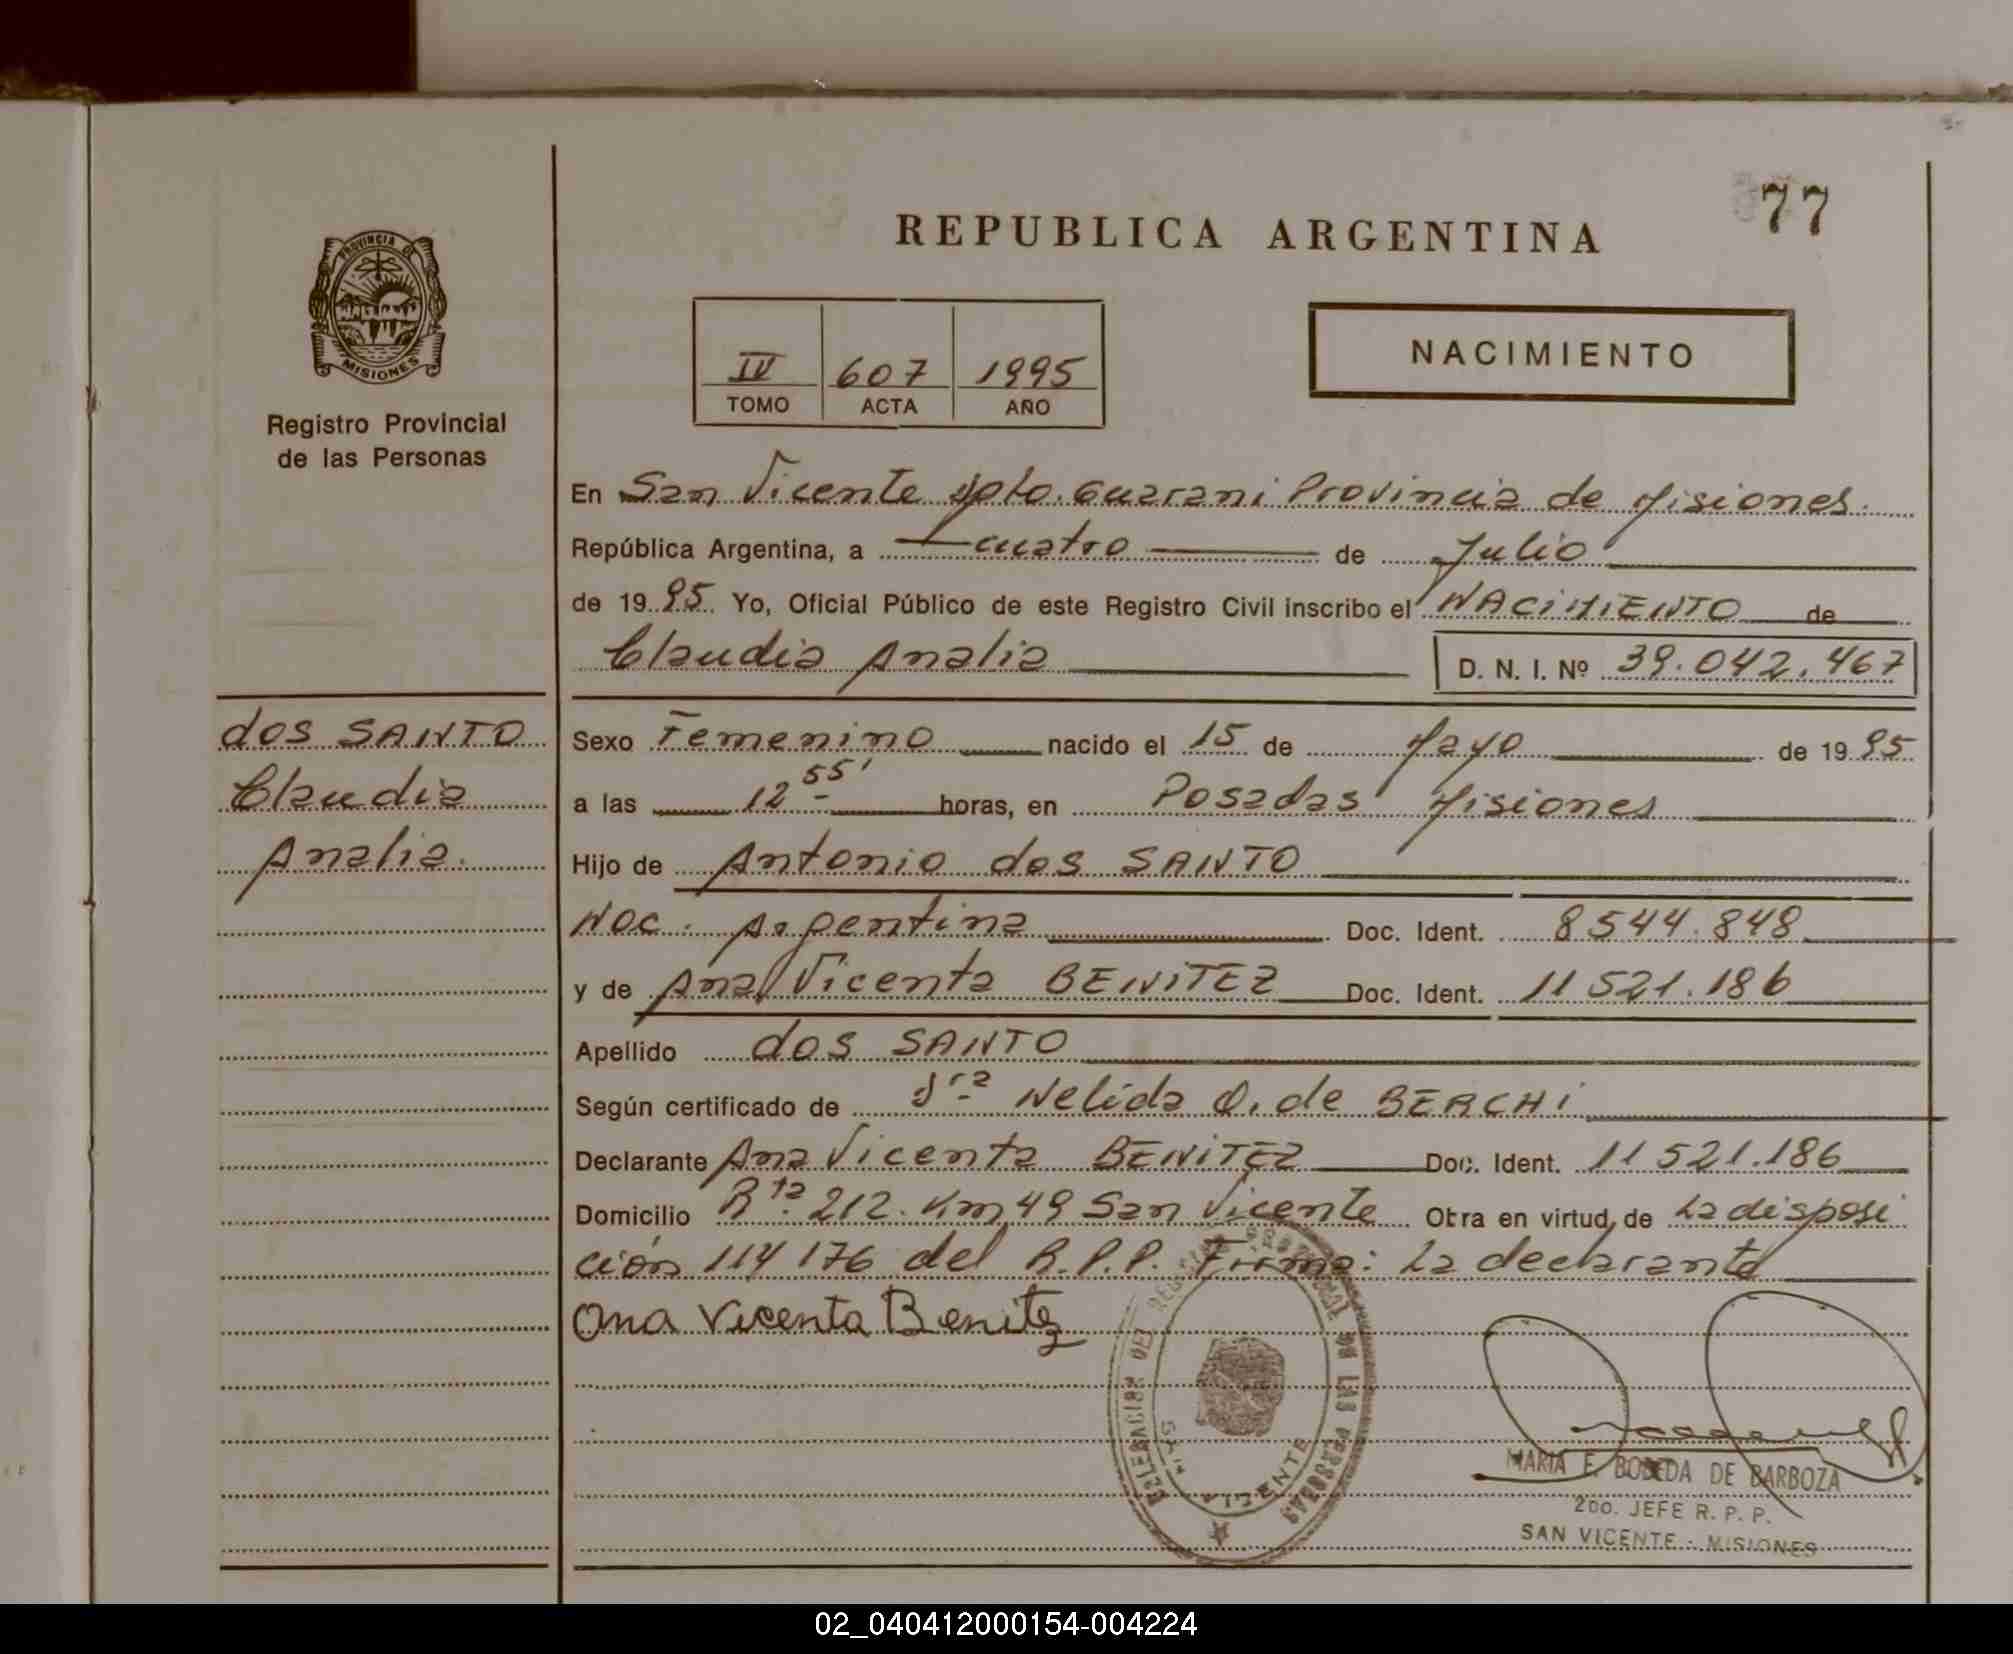 77
REPUBLICA ARGENTINA
PROVINCIA DE
MISIONES
Registro Provincial
de las Personas
IV 607 1995
TOMO ACTA AÑO
NACIMIENTO
En San Vicente Dpto. Guarani Provincia de Misiones.
República Argentina, a cuatro de Julio
de 1995. Yo, Oficial Público de este Registro Civil inscribo el NACIMIENTO de
Claudia Analia D. N. I. Nº 39.042.467
dos SANTO
Claudia
Analia.
Sexo Femenino nacido el 15 de Mayo de 1995
a las 12 55' horas, en Posadas Misiones
Hijo de Antonio dos SANTO
Nac. Argentina Doc. Ident. 8544.848
y de Ana Vicenta BENITEZ Doc. Ident. 11 521.186
Apellido dos SANTO
Según certificado de Sra Nelida O. de BERCHI
Declarante Ana Vicenta BENITEZ Doc. Ident. 11 521.186
Domicilio Rta. 212. Km 49 San Vicente Obra en virtud de La disposi
ción 114/76 del R.P.P. Firma: La declarante
Ana Vicenta Benitez
DELEGACION DEL REGISTRO PROVINCIAL DE LAS PERSONAS
SAN VICENTE
MARIA E. BOBEDA DE BARBOZA
2DO. JEFE R. P. P.
SAN VICENTE - MISIONES
02_040412000154-004224